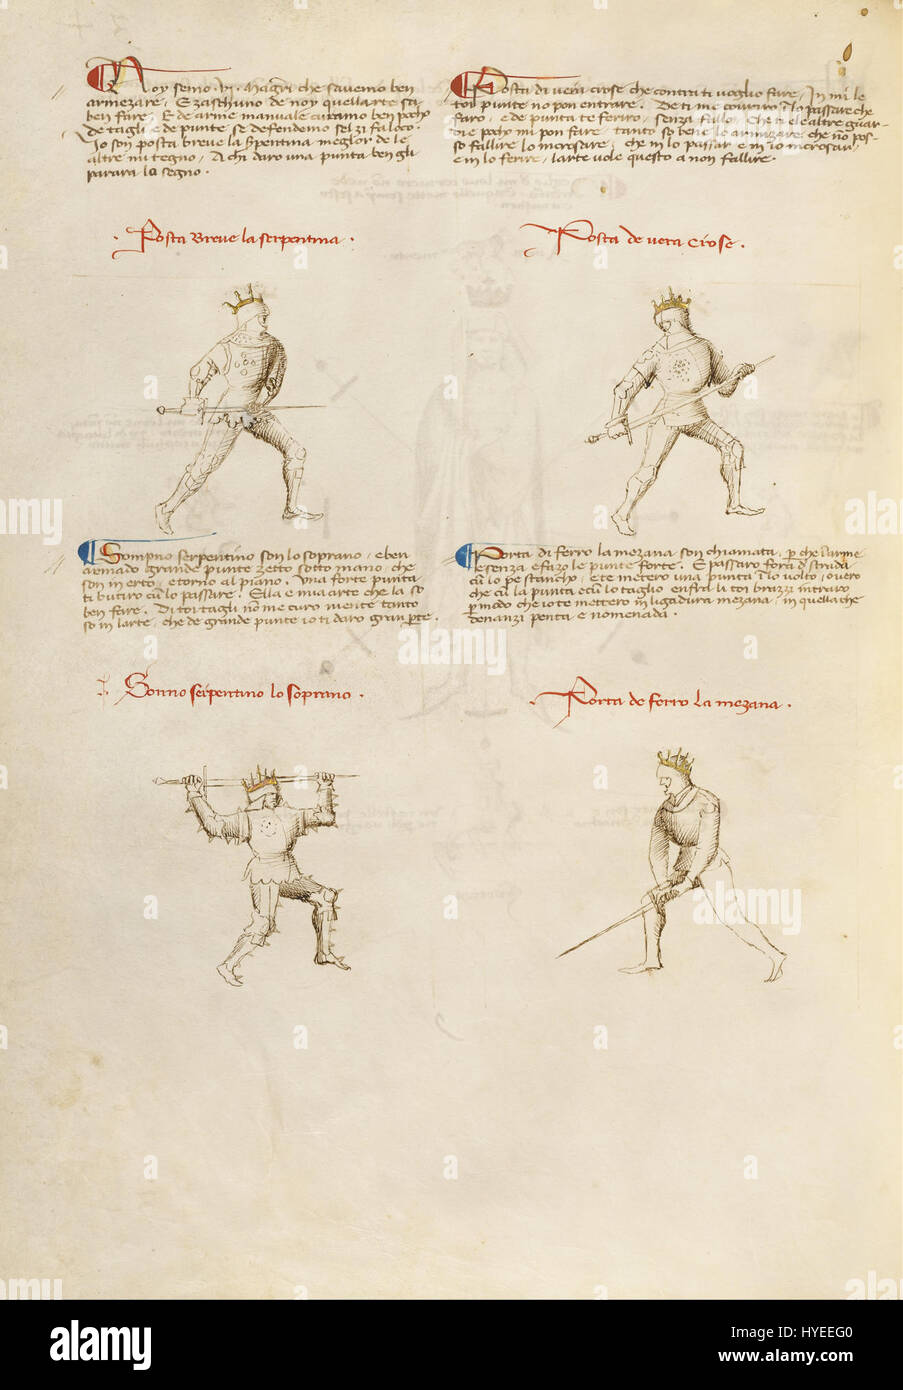 Noy semo .vi. Magistri che savemo ben
armezare, E zaschuno de noy quellarte sa
ben fare. E de arme manuale curamo ben pocho
De tagli e de punte se defendemo sel zi fa loco.
Io son posta breve la Serpentina meglor de le
altre mi tegno, A chi daro una punta ben gli
parara lo segno.
.Posta Breve la serpentina.
Posta di vera crose che contra ti voglio fare, In mi le
toi punte non pon entrare. De ti me covriro i lo passare che
faro, e de punta te feriro, senza fallo, Che ti e le altre guar-
die pocho mi pon fare, tanto so bene le armizare che no pos-
so fallire lo incrosare, che in lo passar e in lo incrosar,
e in lo ferire, larte vole questo a non fallire.
Posta de vera Crose.
Sompno serpentino son lo soprano, e ben
armado grande punte zetto sotto mano, che
son in erto, e torno al piano. Una forte punta
ti butiro cu lo passare. Ella e mia arte che la so
ben fare. Di toi tagli no me curo niente tanto
so in larte, che de grande punte io ti daro gran pte.
Sonno serpentino lo soprano.
Porta di ferro la mezana son chiamata, p che larme
e senza e fazo le punte forte. E passaro fora d strada
cu lo pe stancho, e te metero una punta i lo volto, overo
che cu la punta e cu lo taglio enfra li toi brazzi intraro
p modo che io te mettero in ligadura mezana, in quella che
denanzi penta e nomenada.
Porta de ferro la mezana.
alamy
Image ID: HYEEG0
www.alamy.com